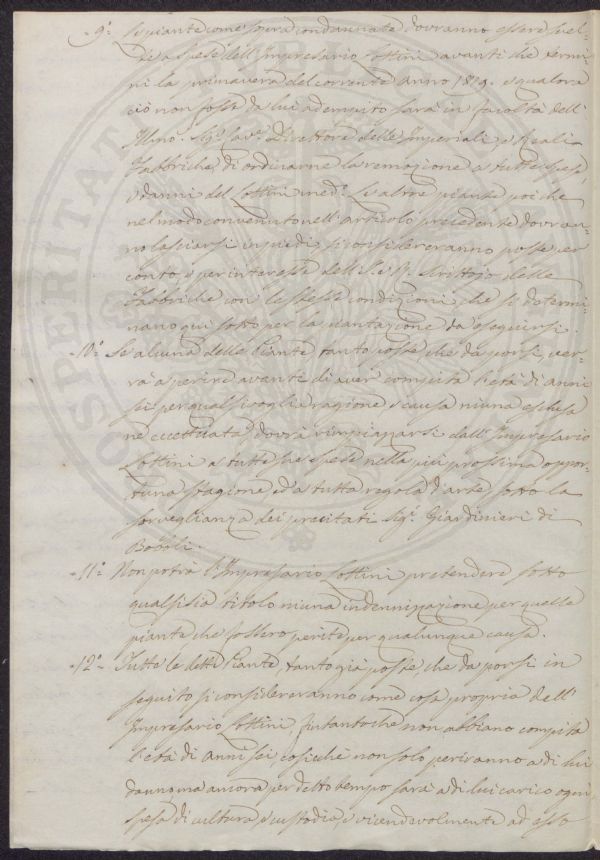 9.° Le piante come sopra condannate dovranno essere svel-
te a spese dell'Impresario Lottini avanti che termi-
ni la primavera del corrente anno 1819. e qualora
ciò non fosse da lui adempito sarà in facoltà dell'
Illmo. Sig.r Cav.r Direttore delle Imperiali e Reali
Fabbriche, di ordinarne la remozione a tutte spese,
e danni del Lottini med.° Le altre piante poi che
nel modo convenuto nell'articolo precedente dovran-
no lasciarsi in piedi, si considereranno poste per
conto e per interesse dell'I. e R. Scrittojo delle
Fabbriche con le stesse condizioni, che si determi-
nano qui sotto per la piantazione da eseguirsi.
10.° Se alcuna delle Piante tanto poste che da porsi, ver-
rà a perire avanti di aver compita l'età di anni
sei per qualsivoglia ragione e causa niuna esclusa
nè eccettuata, dovrà rimpiazzarsi dall'Impresario
Lottini a tutte sue spese nella più prossima oppor-
tuna stagione, ed a tutta regola d'arte, sotto la
sorveglianza dei precitati Sig.i Giardinieri di
Boboli.
11.° Non potrà l'Impresario Lottini pretendere sotto
qualsisia titolo niuna indennizzazione per quelle
piante, che fossero perite per qualunque causa.
12.° Tutte le dette Piante, tanto già poste, che da porsi in
seguito si considereranno come cosa propria dell'
Impresario Lottini, fintantochè non abbiano compita
l'età di anni sei, cosicchè non solo periranno a di lui
danno ma ancora per detto tempo sarà a di lui carico ogni
spesa di cultura, e custodia, e vicendevolmente ad esso
PROSPERITATI